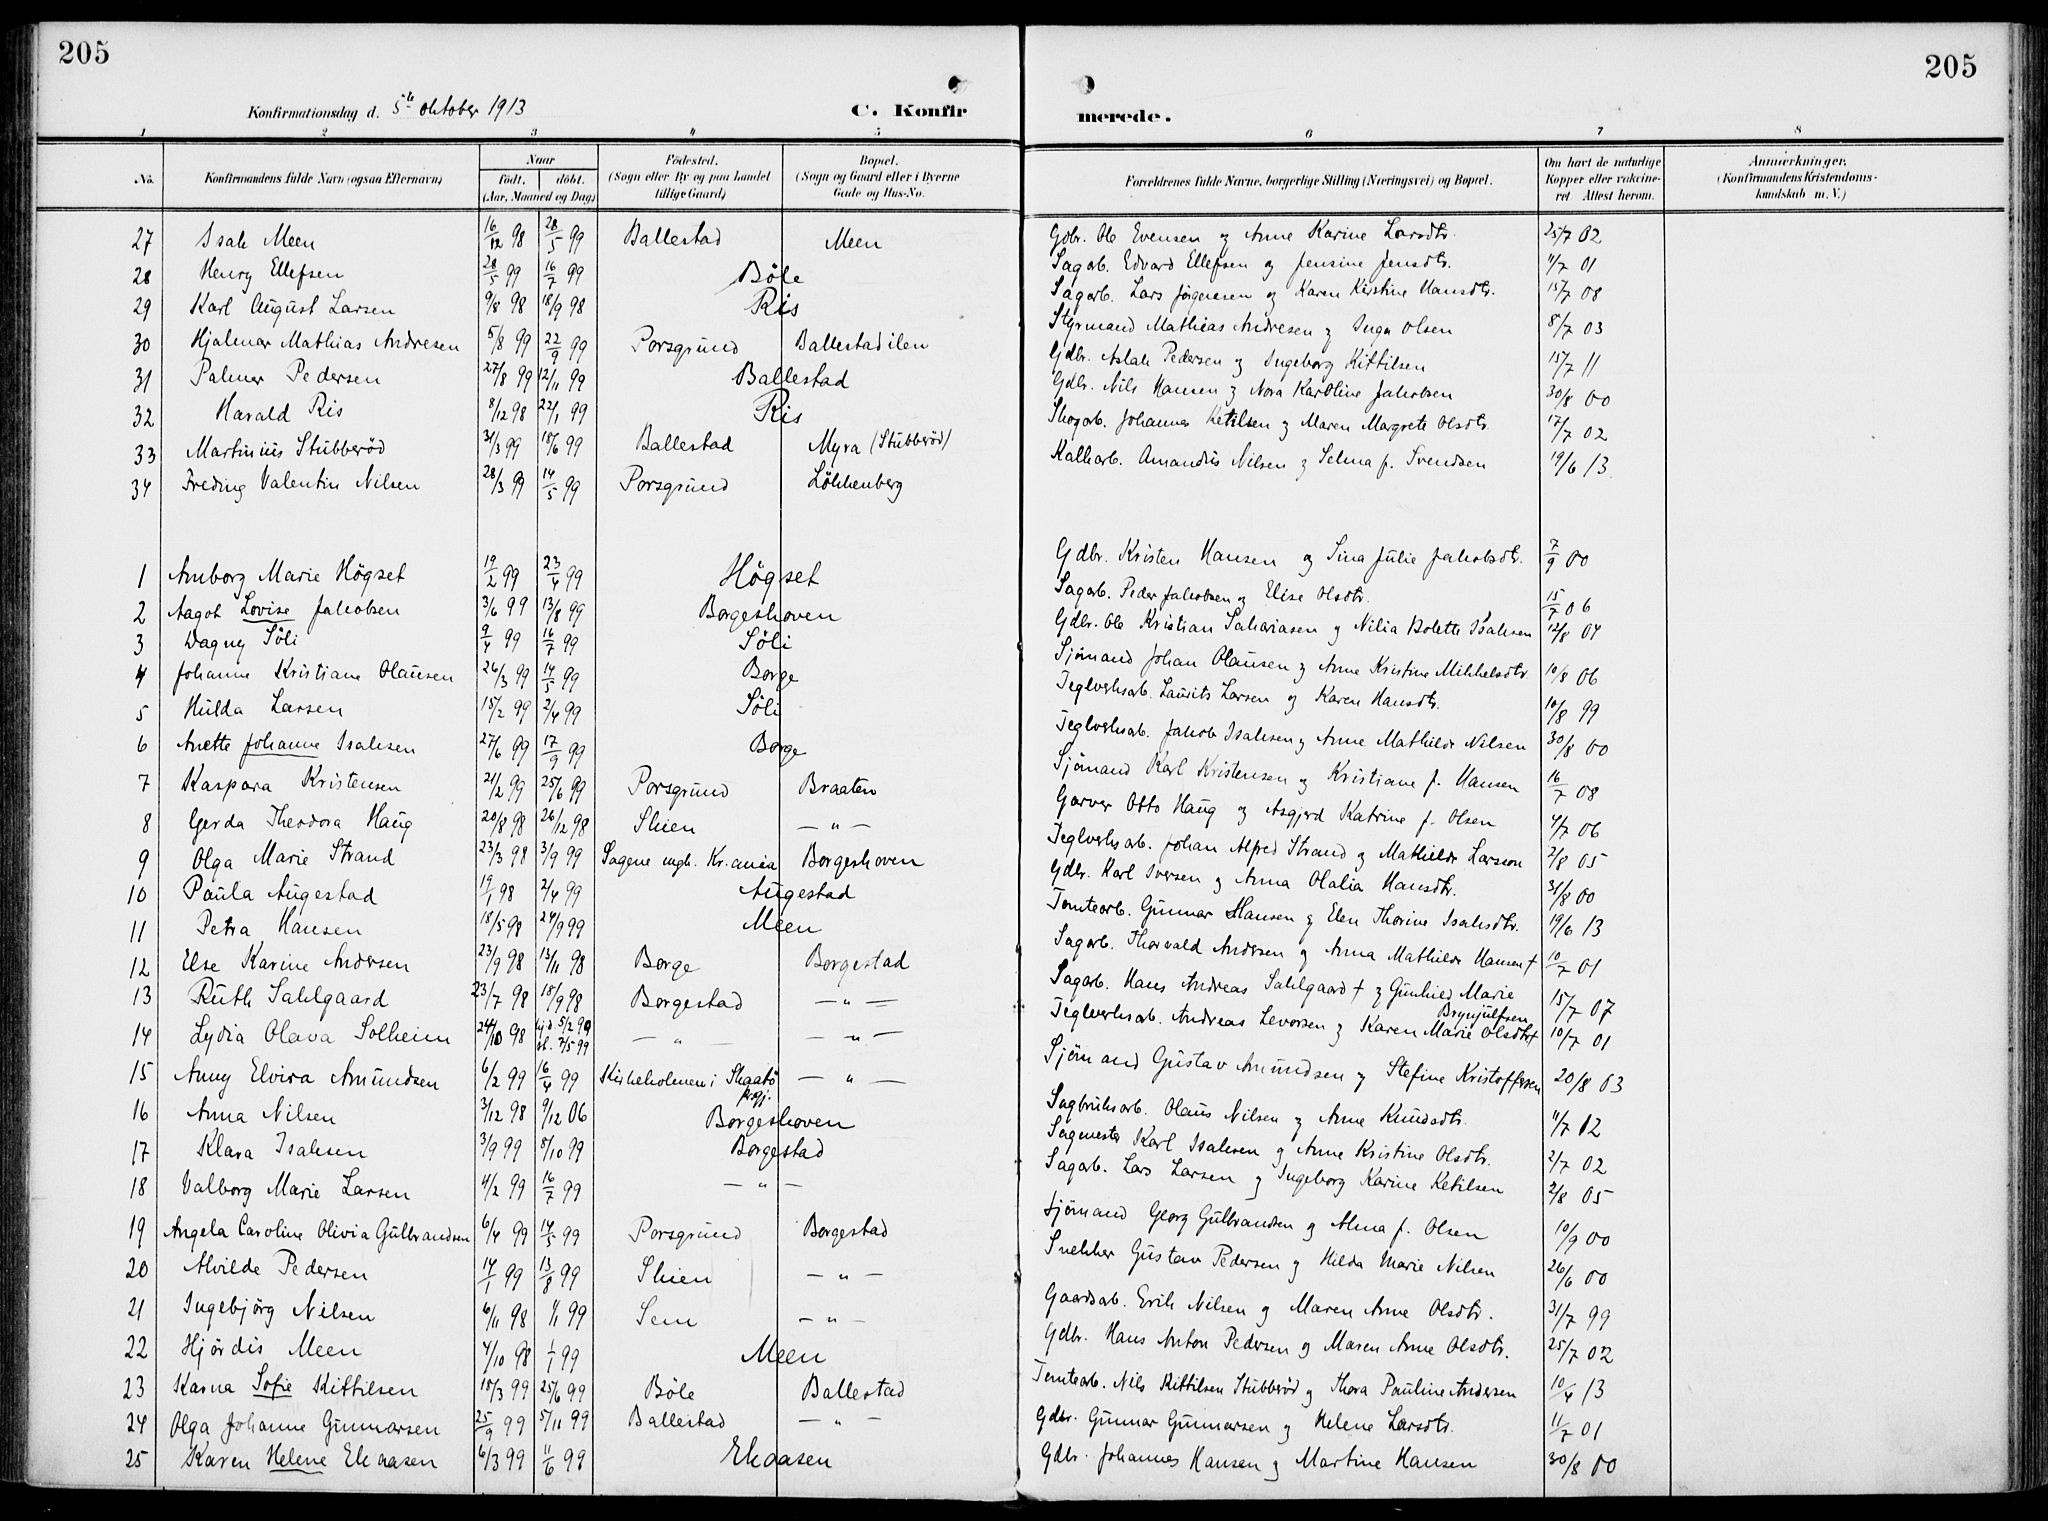 205
205
Konfirmationsdag d. 5te Oktober 1913
C. Konfir
merede.
1 2 3 4 5 6 7 8
No. Konfirmandens fulde Navn (ogsaa Efternavn) Naar født. døbt. (Aar, Maaned og Dag) Fødested. (Sogn eller By og paa Landet tillige Gaard) Bopæl. (Sogn og Gaard eller i Byerne Gade og Hus-No. Forældrenes fulde Navne, borgerlige Stilling (Næringsvei) og Bopæl. Om havt de naturlige Kopper eller vakcineret Attest herom. Anmærkninger. (Konfirmandens Kristendomskundskab m. V.)
27 Isak Meen 16/12 98 28/5 99 Ballestad Meen Gdbr. Ole Evensen og Anne Karine Larsdtr. 25/7 02
28 Henry Ellefsen 28/5 99 16/7 99 Böle Sagarb. Edvard Ellefsen og Jensine Jensdtr. 11/7 01
29 Karl August Larsen 9/8 98 18/9 98 Ris Sagarb. Lars Jørgensen og Karen Kirstine Hansdtr. 15/7 08
30 Hjalmar Mathias Andresen 5/8 99 22/9 99 Porsgrund Ballestadilen Styrmand Mathias Andresen og Inga Olsen 8/7 03
31 Palmer Pedersen 27/8 99 12/11 99 Ballestad Gdbr. Aslak Pedersen og Ingeborg Kittilsen 15/7 11
32 Harald Ris 8/12 98 22/1 99 Ris Gdbr. Nils Hansen og Nora Karoline Jakobsen 30/8 00
33 Martinius Stubberød 31/3 99 18/6 99 Ballestad Myra (Stubberød) Skogarb. Johannes Ketilsen og Maren Margrete Olsdtr. 17/7 02
34 Freding Valentin Nilsen 28/3 99 14/5 99 Porsgrund Lökkenberg Kalkarb. Amandus Nilsen og Selma f. Svendsen 19/6 13.
1 Amborg Marie Högset 19/2 99 23/4 99 Högset Gdbr. Kristen Hansen og Sina Julie Jakobsdtr. 7/9 00
2 Aagot Lovise Jakobsen 3/6 99 13/8 99 Borgeskoven Sagarb. Peder Jakobsen og Elise Olsdtr. 15/7 06
3 Dagny Söli 9/4 99 16/7 99 Söli Gdbr. Ole Kristian Sakariasen og Nilia Bolette Isaksen 12/8 04
4 Johanne Kristiane Olausen 26/3 99 14/5 99 Borge Sjømand Johan Olausen og Anne Kristine Mikkelsdtr. 10/8 06
5 Hulda Larsen 15/2 99 2/4 99 Söli Teglverksarb. Laurits Larsen og Karen Hansdtr. 10/8 99
6 Anette Johanne Isaksen 27/6 99 17/9 99 Borge Teglverksarb. Jakob Isaksen og Anne Mathilde Nilsen 30/8 00
7 Kaspara Kristensen 21/2 99 25/6 99 Porsgrund Braaten Sjømand Karl Kristensen og Kristiane f. Hansen 16/7 08
8 Gerda Theodora Haug 20/8 98 26/12 98 Skien — " — Garver Otto Haug og Asgjerd Katrine f. Olsen 4/7 06
9 Olga Marie Strand 23/3 98 3/9 99 Sagene mgh. Kr.ania Borgeskoven Teglverksarb. Johan Alfred Strand og Mathilde Larsson 2/8 05
10 Paula Augestad 19/1 98 2/4 99 Augestad Gdbr. Karl Iversen og Anna Olalia Hansdtr. 31/8 00
11 Petra Hansen 18/5 98 24/9 99 Meen Tomtearb. Gunnar Hansen og Elen Thorine Isaksdtr. 19/6 13
12 Else Karine Andersen 23/9 98 13/11 98 Borge Borgestad Sagarb. Thorvald Andersen og Anna Mathilde Hansen † 10/7 01
13 Ruth Sahlgaard 23/7 98 18/9 98 Borgestad — " — Sagarb. Hans Andreas Sahlgaard † og Gunhild Marie Brynjulfsen 15/7 07
14 Lydia Olava Solheim 24/10 98 hj.d. 5/2 99 st. 7/5 99 — " — — " — Teglverksarb. Andreas Levorsen og Karen Marie Olsdtr † 10/7 01
15 Anny Elvira Amundsen 6/2 99 16/4 99 Kirkeholmen i Skaatö prgj. — " — Sjømand Gustav Amundsen og Stefine Kristoffersen 20/8 03
16 Anna Nilsen 3/12 98 9/12 06 Borgeskoven Sagbruksarb. Olaus Nilsen og Anne Knudsdtr. 11/7 12
17 Klara Isaksen 3/9 99 8/10 99 Borgestad Sagmester Karl Isaksen og Anne Kristine Olsdtr. 2/7 02
18 Valborg Marie Larsen 4/2 99 16/7 99 — " — Sagarb. Lars Larsen og Ingeborg Karine Ketilsen 2/8 05
19 Angela Caroline Olivia Gulbrandsen 6/4 99 14/5 99 Porsgrund Borgestad Sjømand Georg Gulbrandsen og Alma f. Olsen 10/9 00
20 Alvilde Pedersen 14/1 99 13/8 99 Skien — " — Snekker Gustav Pedersen og Hilda Marie Nilsen 26/6 00
21 Ingebjörg Nilsen 6/11 98 1/1 99 Sem — " — Gaardsarb. Erik Nilsen og Maren Anne Olsdtr. 31/7 99
22 Hjördis Meen 4/10 98 1/1 99 Meen Gdbr. Hans Anton Pedersen og Maren Anne Olsdtr. 25/7 02
23 Karna Sofie Kittilsen 18/3 99 25/6 99 Böle Ballestad Tomtearb. Nils Kittilsen Stubberød og Thora Pauline Andersen 10/4 13
24 Olga Johanne Gunnarsen 25/9 99 5/11 99 Ballestad — " — Gdbr. Gunnar Gunnarsen og Helene Larsdtr. 11/7 01
25 Karen Helene Ekaasen 6/3 99 11/6 99 Ekaasen Gdbr. Johannes Hansen og Martine Hansen 30/8 00